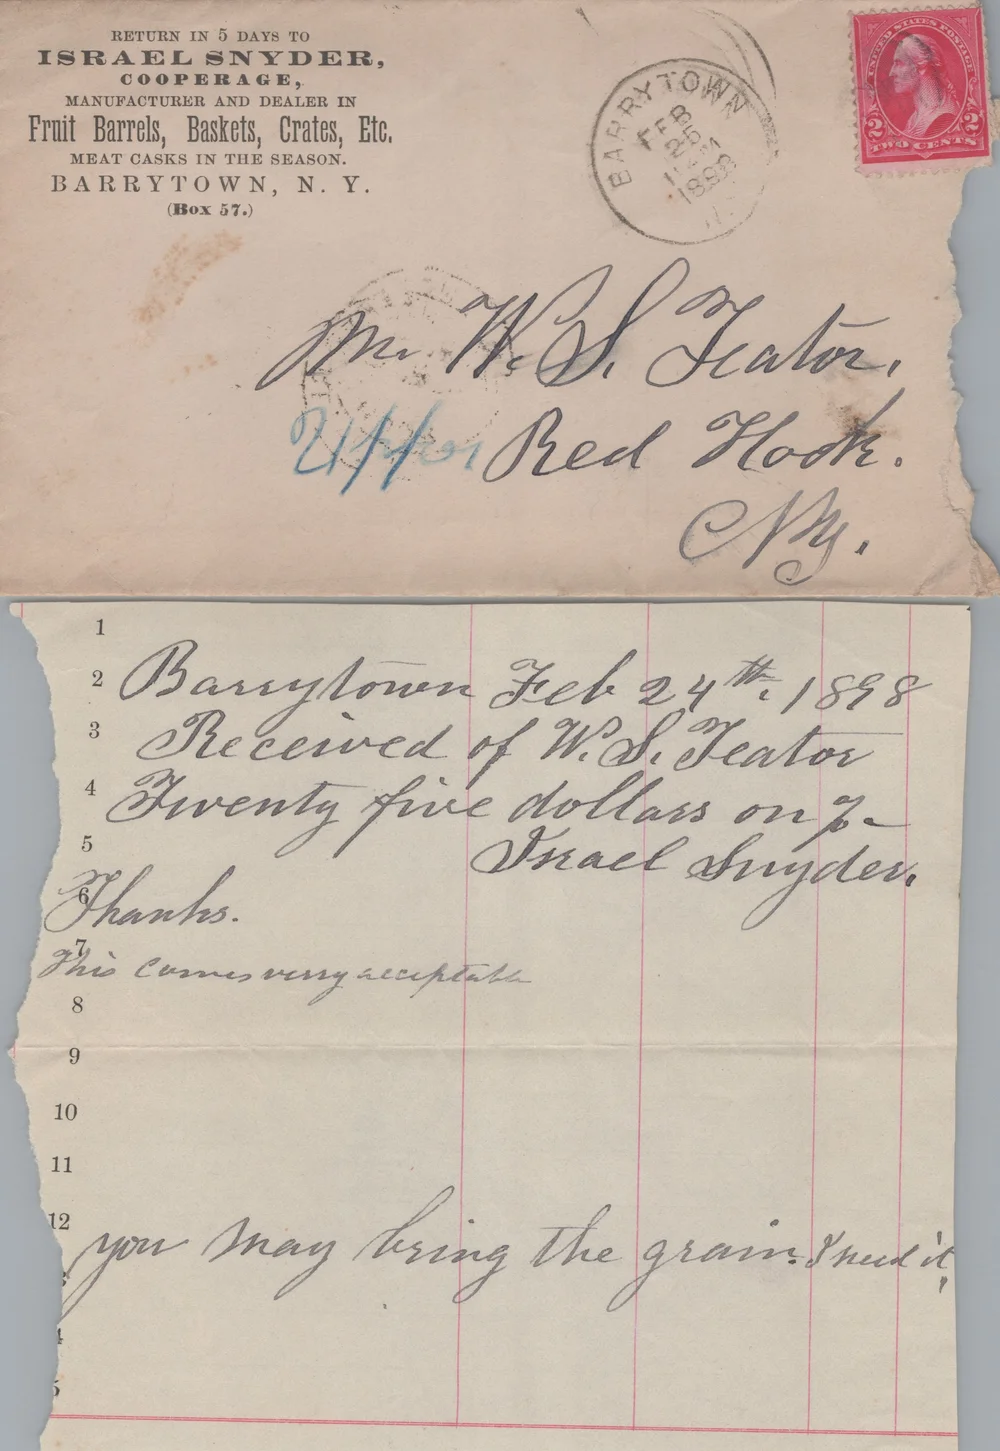 RETURN IN 5 DAYS TO
ISRAEL SNYDER,
COOPERAGE,
MANUFACTURER AND DEALER IN
Fruit Barrels, Baskets, Crates, Etc.
MEAT CASKS IN THE SEASON.
BARRYTOWN, N. Y.
(Box 57.)
BARRYTOWN
FEB
25
1898
N.
UNITED STATES POSTAGE
2 2
TWO CENTS
Mr W. S. Teator.
Upper Red Hook.
N.Y.
1
2 Barrytown Feb 24th. 1898
3 Received of W. S. Teator
4 Twenty five dollars on
5 Israel Snyder.
6 Thanks.
7 This comes verry acceptable
8
9
10
11
12 you may bring the grain. I need it,